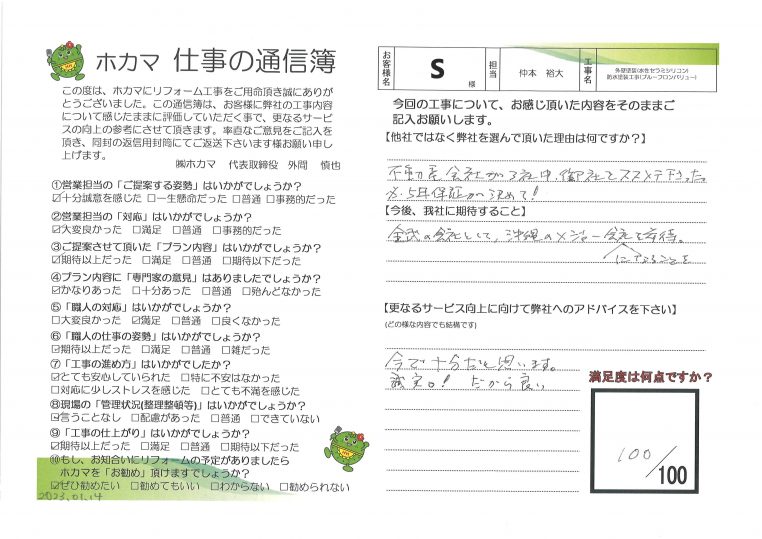 ホカマ 仕事の通信簿
この度は、ホカマにリフォーム工事をご用命頂き誠にありが
とうございました。この通信簿は、お客様に弊社の工事内容
について感じたままに評価していただく事で、更なるサービ
スの向上の参考にさせて頂きます。率直なご意見をご記入を
頂き、同封の返信用封筒にてご返送下さいます様お願い申し
上げます。
㈱ホカマ 代表取締役 外間 慎也
①営業担当の「ご提案する姿勢」はいかがでしょうか?
☑十分誠意を感じた □一生懸命だった □普通 □事務的だった
②営業担当の「対応」はいかがでしょうか?
☑大変良かった □満足 □普通 □事務的だった
③ご提案させて頂いた「プラン内容」はいかがでしょうか?
☑期待以上だった □満足 □普通 □期待以下だった
④プラン内容に「専門家の意見」はありましたでしょうか?
☑かなりあった □十分あった □普通 □殆んどなかった
⑤「職人の対応」はいかがでしょうか?
□大変良かった ☑満足 □普通 □良くなかった
⑥「職人の仕事の姿勢」はいかがでしょうか?
☑期待以上だった □満足 □普通 □雑だった
⑦「工事の進め方」はいかがでしたか?
☑とても安心していられた □特に不安はなかった
□対応に少しストレスを感じた □とても不満を感じた
⑧現場の「管理状況(整理整頓等)」はいかがでしょうか?
☑言うことなし □配慮があった □普通 □できていない
⑨「工事の仕上がり」はいかがでしょうか?
☑期待以上だった □満足 □普通 □期待以下だった
⑩もし、お知合いにリフォームの予定がありましたら
ホカマを「お勧め」頂けますでしょうか?
☑ぜひ勧めたい □勧めてもいい □わからない □勧められない
2023.01.14
お客様名 S 様 担当 仲本 裕大 工事名 外壁塗装(水性セラミシリコン)
防水塗装工事(プルーフロンバリュー)
今回の工事について、お感じ頂いた内容をそのままご
記入お願いします。
【他社ではなく弊社を選んで頂いた理由は何ですか?】
不動産会社が3社中、御社をススメて下さった。
5年保証が決めて!
【今後、我社に期待すること】
会社として、沖縄のメジャー会社を期待。
になることを
【更なるサービス向上に向けて弊社へのアドバイスを下さい】
(どの様な内容でも結構です)
今で十分だと思います。
誠実。! だから良い
満足度は何点ですか?
100/100